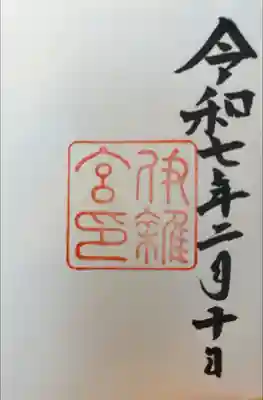 令和七年二月十日
伊雜
宮印